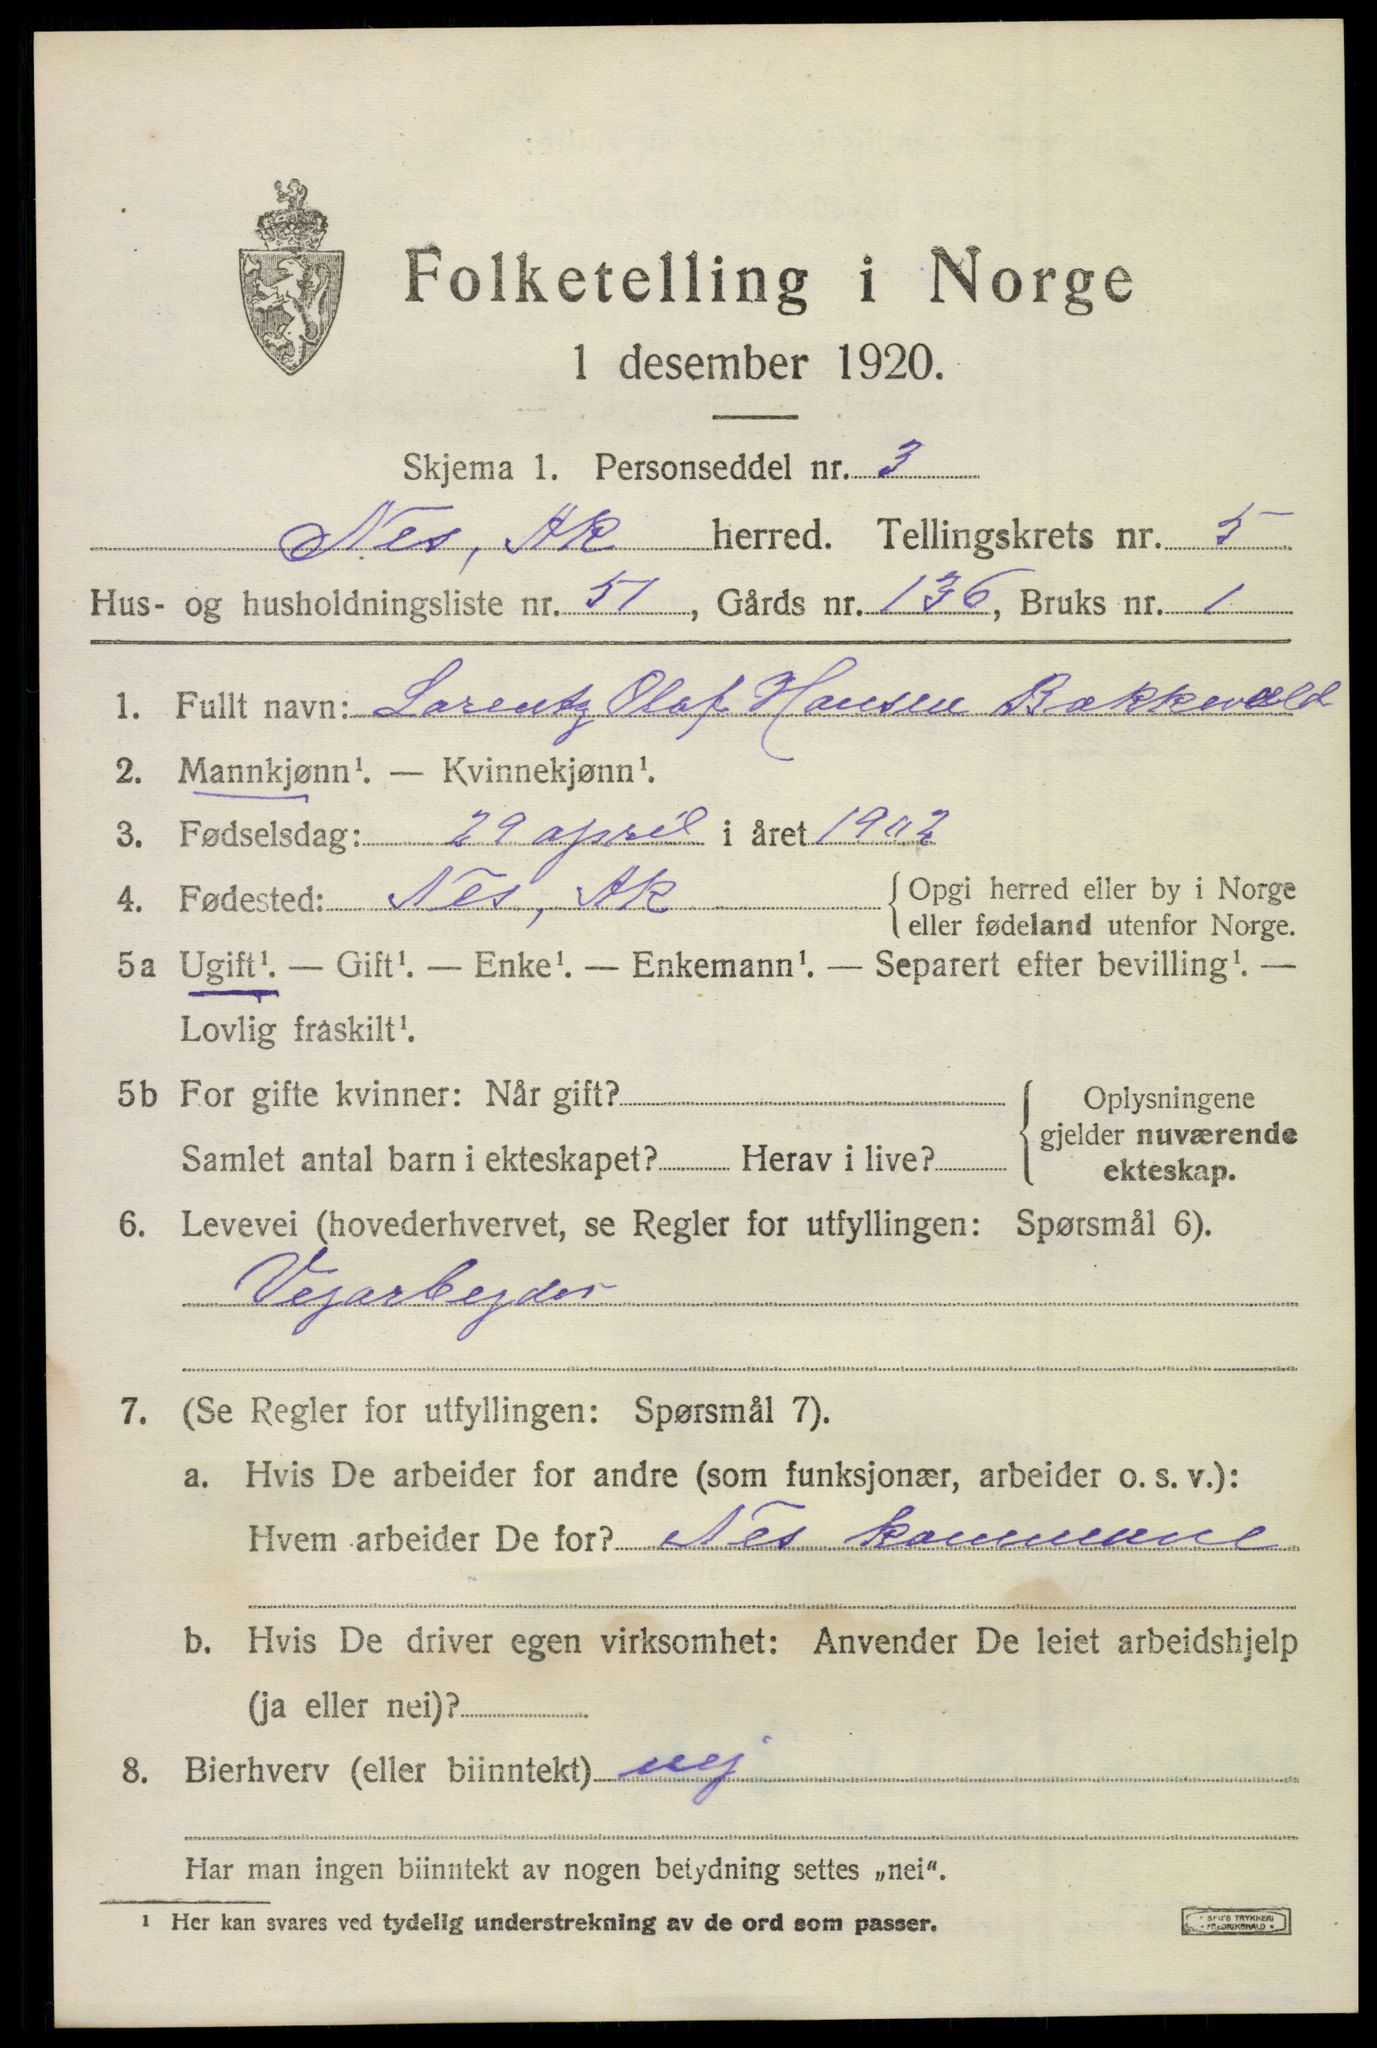 Folketelling i Norge
1 desember 1920.
Skjema 1. Personseddel nr. 3
Nes, Ak herred. Tellingskrets nr. 5
Hus- og husholdningsliste nr. 51, Gårds nr. 136, Bruks nr. 1
1. Fullt navn: Lorentz Olaf Hansen Bakkevold
2. Mannkjønn¹. — Kvinnekjønn¹.
3. Fødselsdag: 29 april i året 1902
4. Fødested: Nes, Ak { Opgi herred eller by i Norge
eller fødeland utenfor Norge.
5a Ugift¹. — Gift¹. — Enke¹. — Enkemann¹. — Separert efter bevilling¹. —
Lovlig fraskilt¹.
5b For gifte kvinner: Når gift? { Oplysningene
gjelder nuværende
Samlet antal barn i ekteskapet? Herav i live?
ekteskap.
6. Levevei (hovederhvervet, se Regler for utfyllingen: Spørsmål 6).
Vejarbejder
7. (Se Regler for utfyllingen: Spørsmål 7).
a. Hvis De arbeider for andre (som funksjonær, arbeider o. s. v.):
Hvem arbeider De for? Nes kommune
b. Hvis De driver egen virksomhet: Anvender De leiet arbeidshjelp
(ja eller nei)?
8. Bierhverv (eller biinntekt) nej
Har man ingen biinntekt av nogen betydning settes „nei“.
¹ Her kan svares ved tydelig understrekning av de ord som passer.
TRYKKERI
FREDRIKSHALD